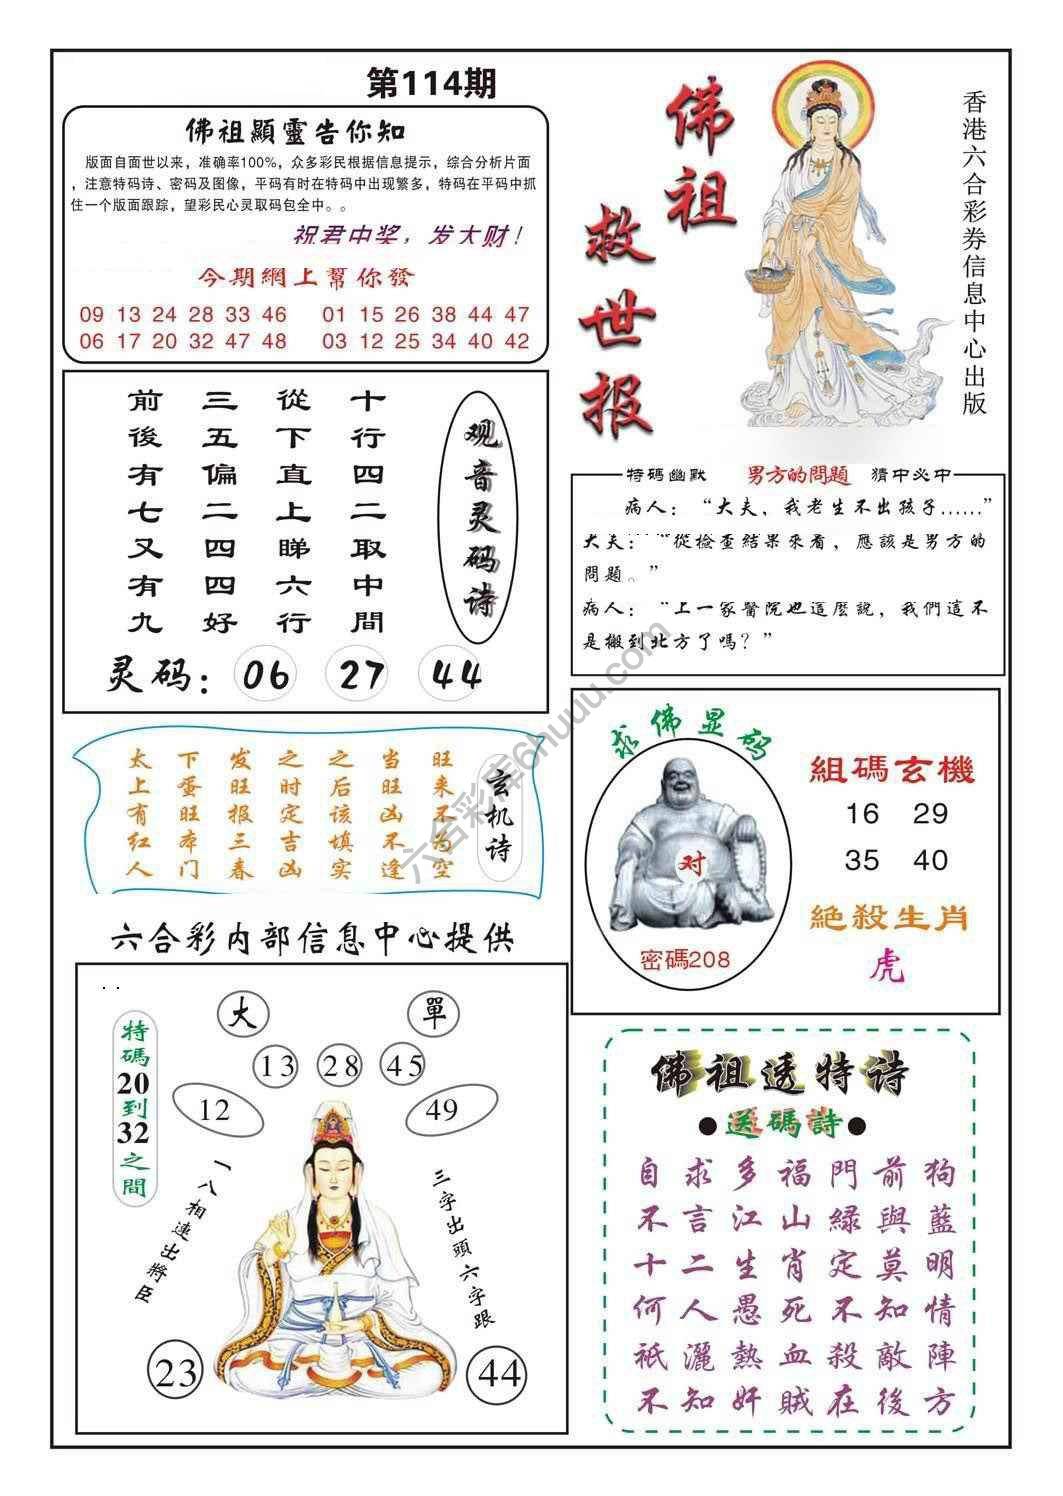 第114期
佛祖顯靈告你知
版面自面世以来，准确率100%，众多彩民根据信息提示，综合分析片面
，注意特码诗、密码及图像，平码有时在特码中出现繁多，特码在平码中抓
住一个版面跟踪，望彩民心灵取码包全中。。
祝君中奖，发大财！
今期網上幫你發
09 13 24 28 33 46 01 15 26 38 44 47
06 17 20 32 47 48 03 12 25 34 40 42
佛祖
救世报
香港六合彩券信息中心出版
观音灵码诗
十行四二取中間
從下直上睇六行
三五偏二四四好
前後有七又有九
灵码：06 27 44
特碼幽默 男方的問題 猜中必中
病人：“大夫，我老生不出孩子……”
大夫：“從檢查結果來看，應該是男方的
問題。”
病人：“上一家醫院也這麼說，我們這不
是搬到北方了嗎？”
玄机诗
旺来不为空
当旺凶不逢
之后该填实
之时定吉凶
发旺报三春
下蛋旺本门
太上有红人
求佛显码
对
密碼208
組碼玄機
16 29
35 40
絕殺生肖
虎
六合彩内部信息中心提供
大 單
13 28 45
12 49
特碼20到32之間
一八相連出將臣
三字出頭六字跟
23 44
佛祖透特诗
●送碼詩●
自求多福門前狗
不言江山緑與藍
十二生肖定莫明
何人愚死不知情
祇灑熱血殺敵陣
不知奸賊在後方
六合彩库6huuu.com